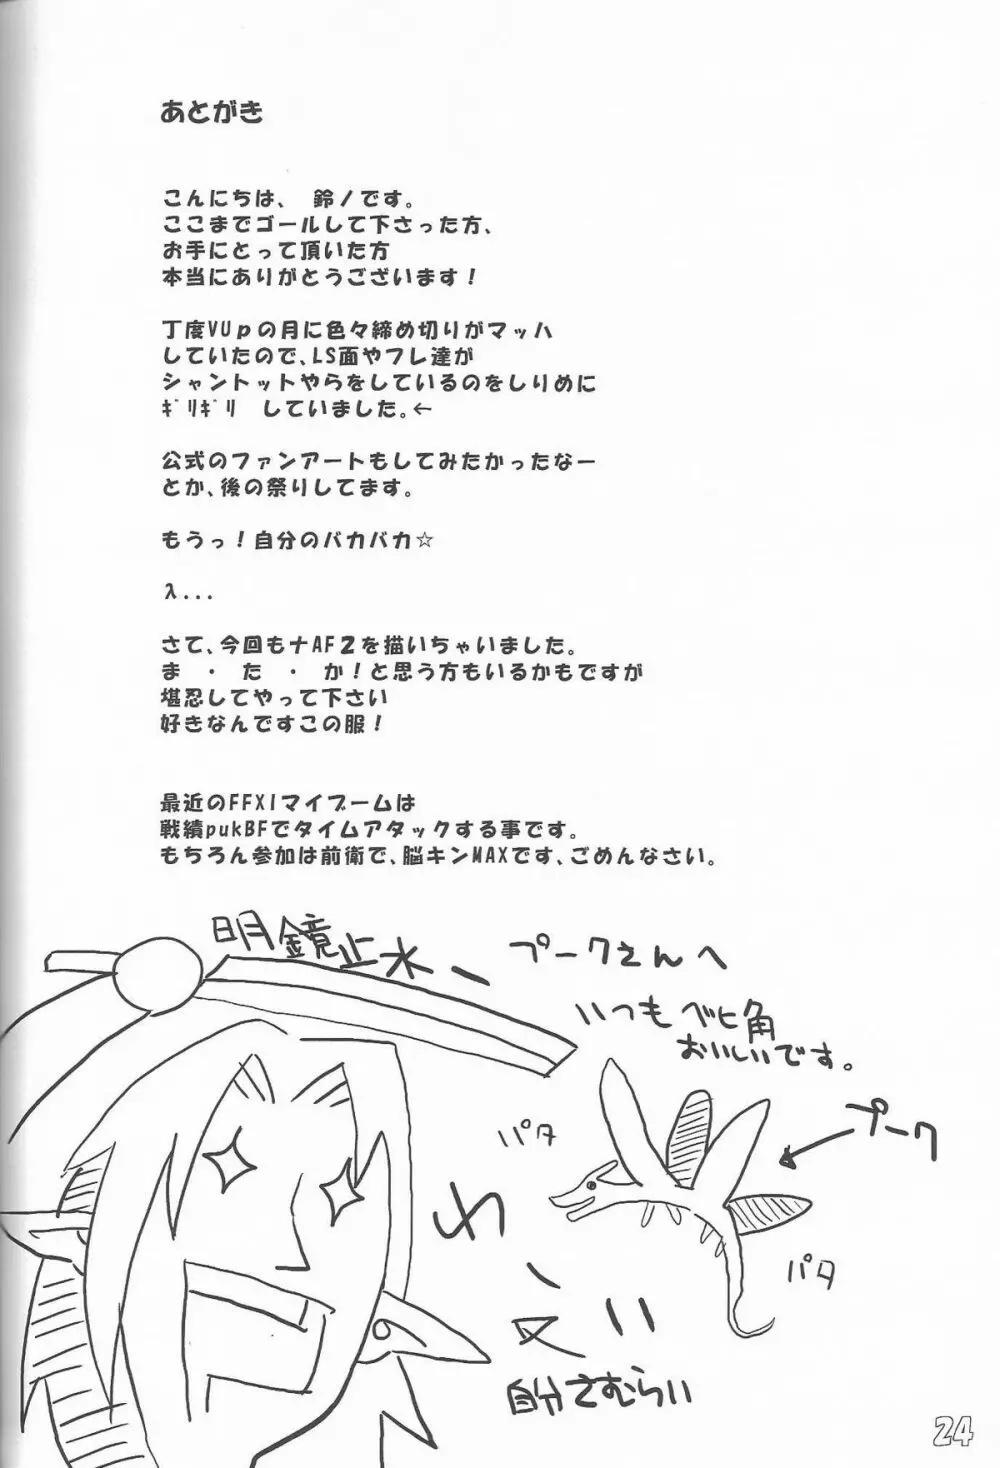 あとがき
こんにちは、 鈴ノです。
ここまでゴールして下さった方、
お手にとって頂いた方
本当にありがとうございます!
丁度VUpの月に色々締め切りがマッハ
していたので、LS面やフレ達が
シャントットやらをしているのをしりめに
ｷﾞﾘｷﾞﾘ していました。←
公式のファンアートもしてみたかったなー
とか、後の祭りしてます。
もうっ!自分のバカバカ☆
λ...
さて、今回もナAF2を描いちゃいました。
ま ・ た ・ か!と思う方もいるかもですが
堪忍してやって下さい
好きなんですこの服!
最近のFFXIマイブームは
戦績pukBFでタイムアタックする事です。
もちろん参加は前衛で、脳キンMAXです、ごめんなさい。
明鏡止水ー
プークさんへ
いつもベヒ角
おいしいです。
プーク
パタ
パタ
自分さむらい
24